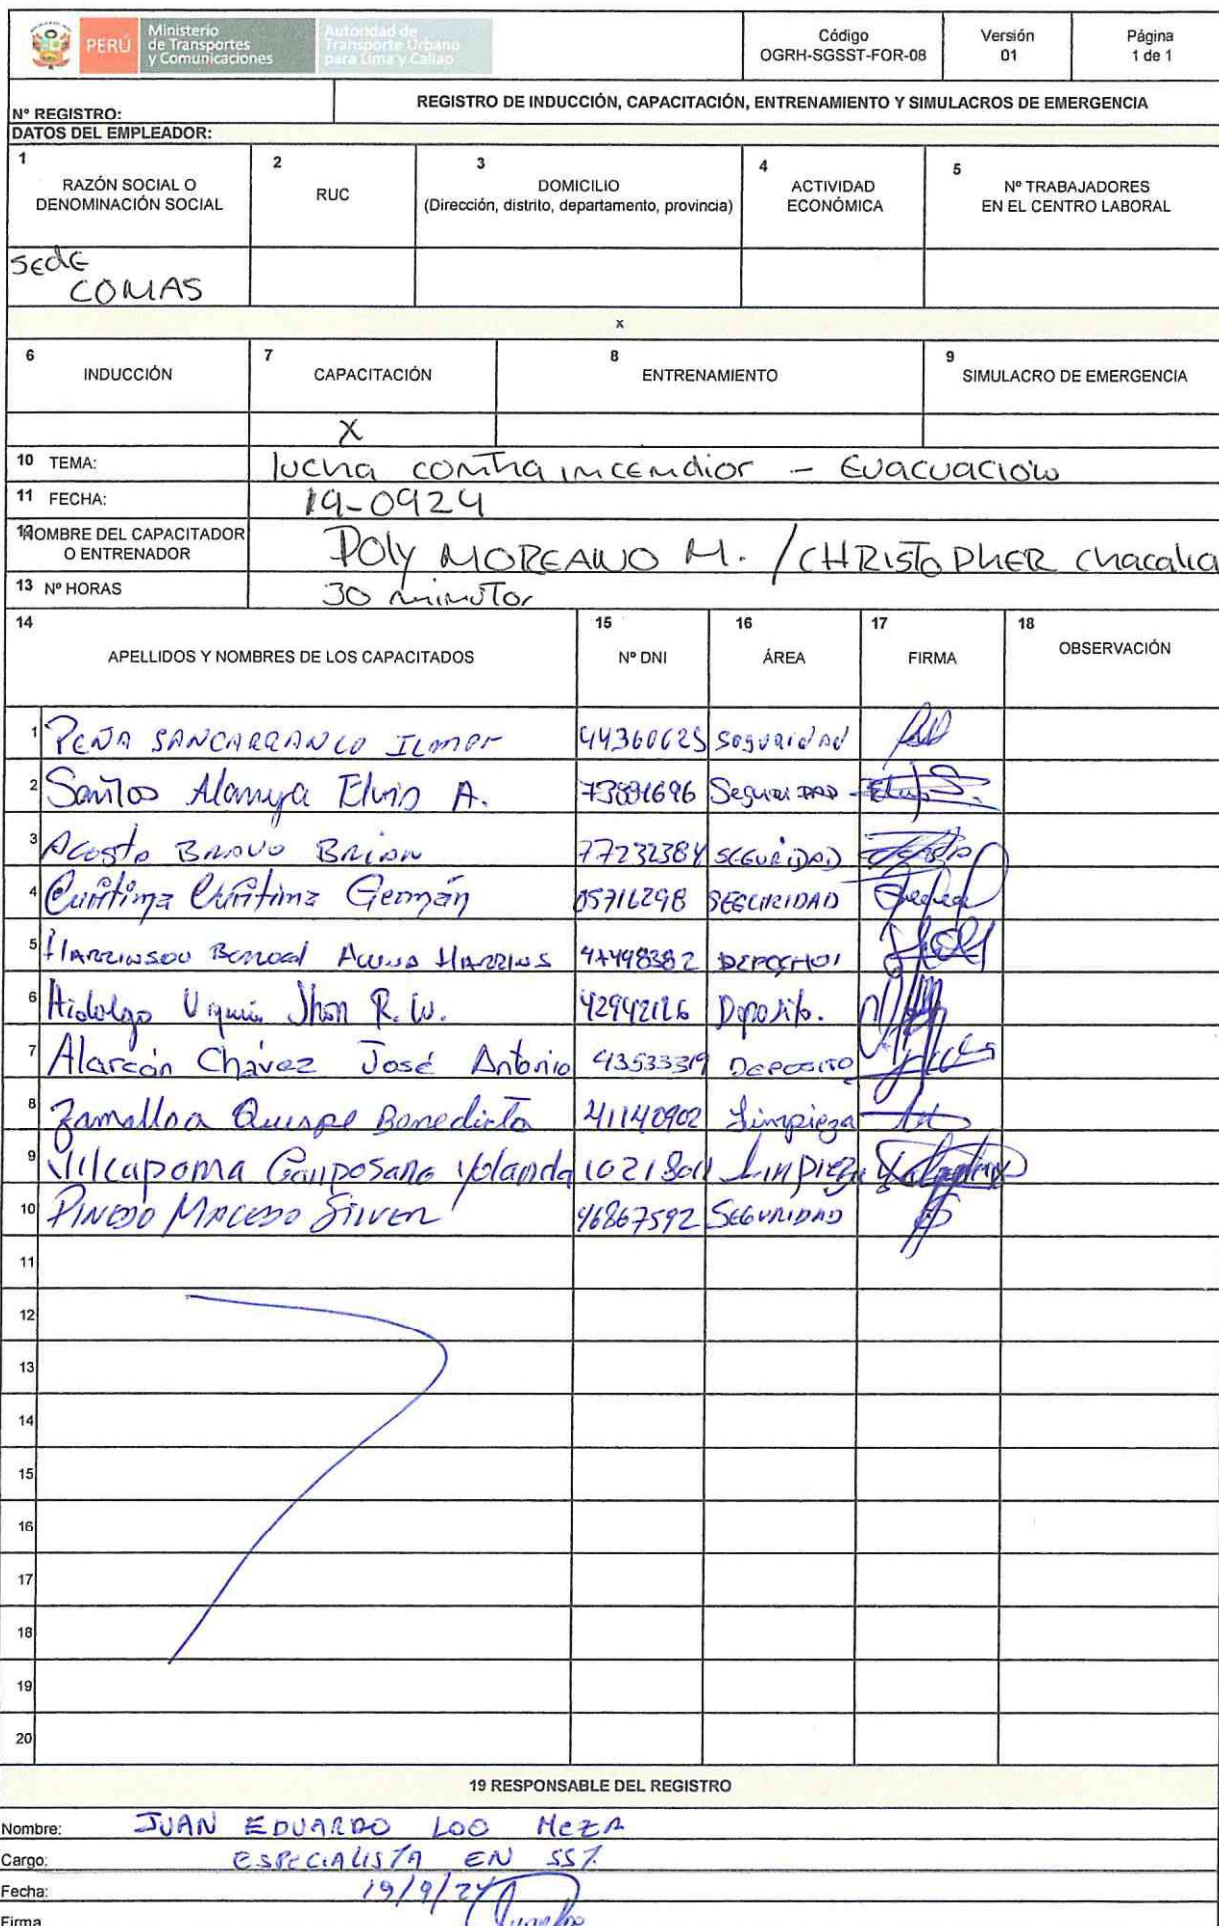 PERÚ Ministerio de Transportes y Comunicaciones Autoridad de Transporte Urbano para Lima y Callao
Código OGRH-SGSST-FOR-08
Versión 01
Página 1 de 1
Nº REGISTRO:
REGISTRO DE INDUCCIÓN, CAPACITACIÓN, ENTRENAMIENTO Y SIMULACROS DE EMERGENCIA
DATOS DEL EMPLEADOR:
1 RAZÓN SOCIAL O DENOMINACIÓN SOCIAL
2 RUC
3 DOMICILIO (Dirección, distrito, departamento, provincia)
4 ACTIVIDAD ECONÓMICA
5 Nº TRABAJADORES EN EL CENTRO LABORAL
SEDE
COMAS
x
6 INDUCCIÓN
7 CAPACITACIÓN
8 ENTRENAMIENTO
9 SIMULACRO DE EMERGENCIA
X
10 TEMA: lucha contra incendios - Evacuación
11 FECHA: 19-0924
12 NOMBRE DEL CAPACITADOR O ENTRENADOR Poly MOREANO M. / CHRISTOPHER Chacalia
13 Nº HORAS 30 minutos
14 APELLIDOS Y NOMBRES DE LOS CAPACITADOS
15 Nº DNI
16 ÁREA
17 FIRMA
18 OBSERVACIÓN
1 PEÑA SANCARRANCO 44360625 Seguridad
2 Santos Alamya Elvis A. Seguridad
3 Acosta BRAVO BRIAN 77232384 SEGURIDAD
4 Curitima Curitima Germán 05716298 SEGURIDAD
5 HARRINSON 47498382
6 Hidalgo Jhon R. W. 42942126 Deposito.
7 Alarcón Chávez José Antonio 43533319 DEPOSITO
8 Zamalloa Quispe Benedicta 41140902 Limpieza
9 Vilcapoma Camposano Yolanda Limpieza
10 PINEDO MACEDO SILVER 46867592 SEGURIDAD
11
12
13
14
15
16
17
18
19
20
19 RESPONSABLE DEL REGISTRO
Nombre: JUAN EDUARDO LOO MEZA
Cargo: ESPECIALISTA EN SST.
Fecha: 19/9/24
Firma